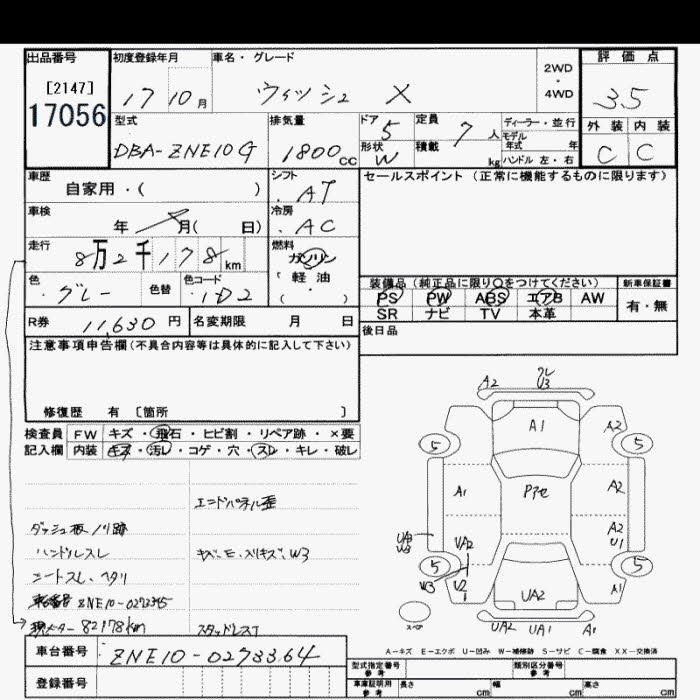 出品番号 初度登録年月 車名・グレード 2WD ・ 4WD 評価点
[2147] 17056 17 10月 ウィッシュ X 3.5
型式 排気量 ドア 5 定員 7人 ディーラー・並行 外装 内装
DBA-ZNE10G 1800cc 形状 W 積載 kg モデル年式 年 ハンドル 左・右 C C
車歴 シフト セールスポイント(正常に機能するものに限ります)
自家用・( ) AT
車検 年 月( 日) 冷房 AC
走行 8万2千178km 燃料 ガソリン
軽油
( )
色 グレー 色替 色コード 1D2
装備品(純正品に限り○をつけてください) 新車保証書
PS PW ABS エアB AW 有・無
SR ナビ TV 本革
R券 11,630円 名変期限 月 日 後日品
注意事項申告欄(不具合内容等は具体的に記入して下さい)
修復歴 有 〔箇所 〕
検査員 FW キズ・飛石・ヒビ割・リペア跡・×要
記入欄 内装 キズ・汚レ・コゲ・穴・スレ・キレ・破レ
エンドパネル歪
ダッシュ板ノリ跡
ハンドルスレ
シートスレ、ヘタリ
車台番号 ZNE10-0273345
現メーター 82178km
スタッドレス
車台番号 ZNE10-0273364
登録番号
A2 U3
A1 A2
5 5
A1 Pアセ A2
A2 U1
UA3 U3 UA2
5 5
W3 U2 UA2 A1
スペア UA2 UA1 A1
A-キズ E-エクボ U-凹み W-補修跡 S-サビ C-腐食 XX-交換済
型式指定番号 参考 類別区分番号 参考
車庫証明用 参考 長さ cm 幅 cm 高さ cm